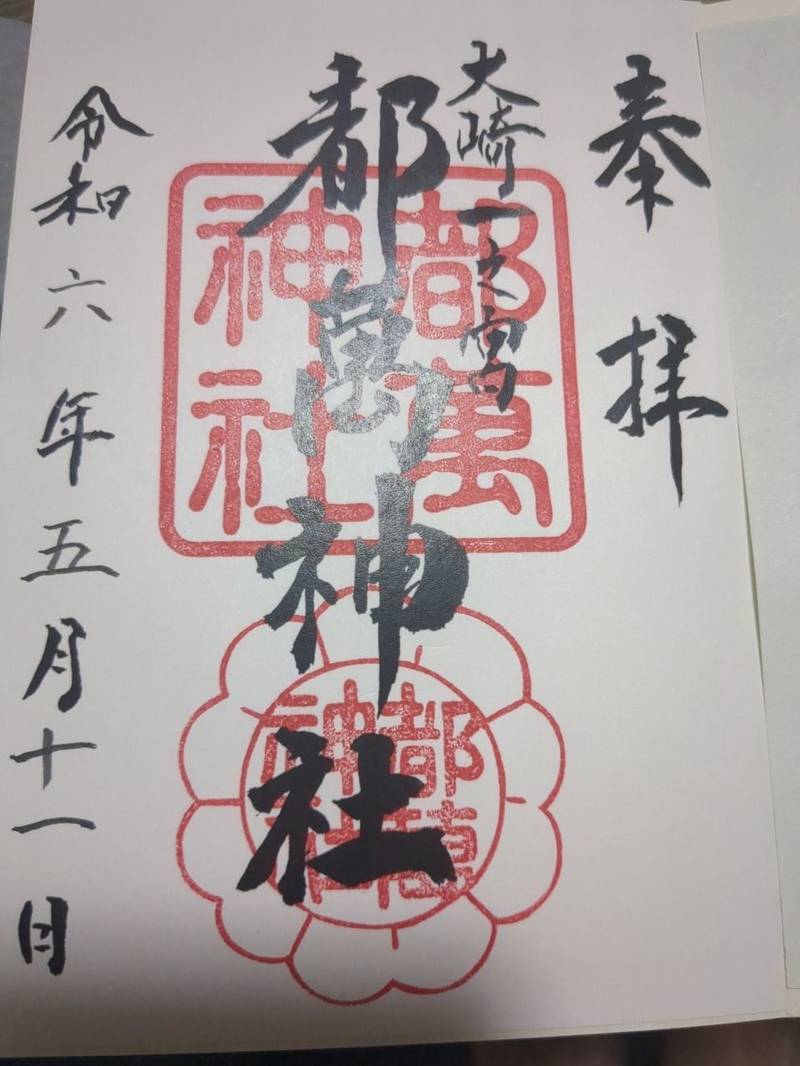 奉拝
大崎一之宮
都萬神社
令和六年五月十一日
都萬
神社
神社